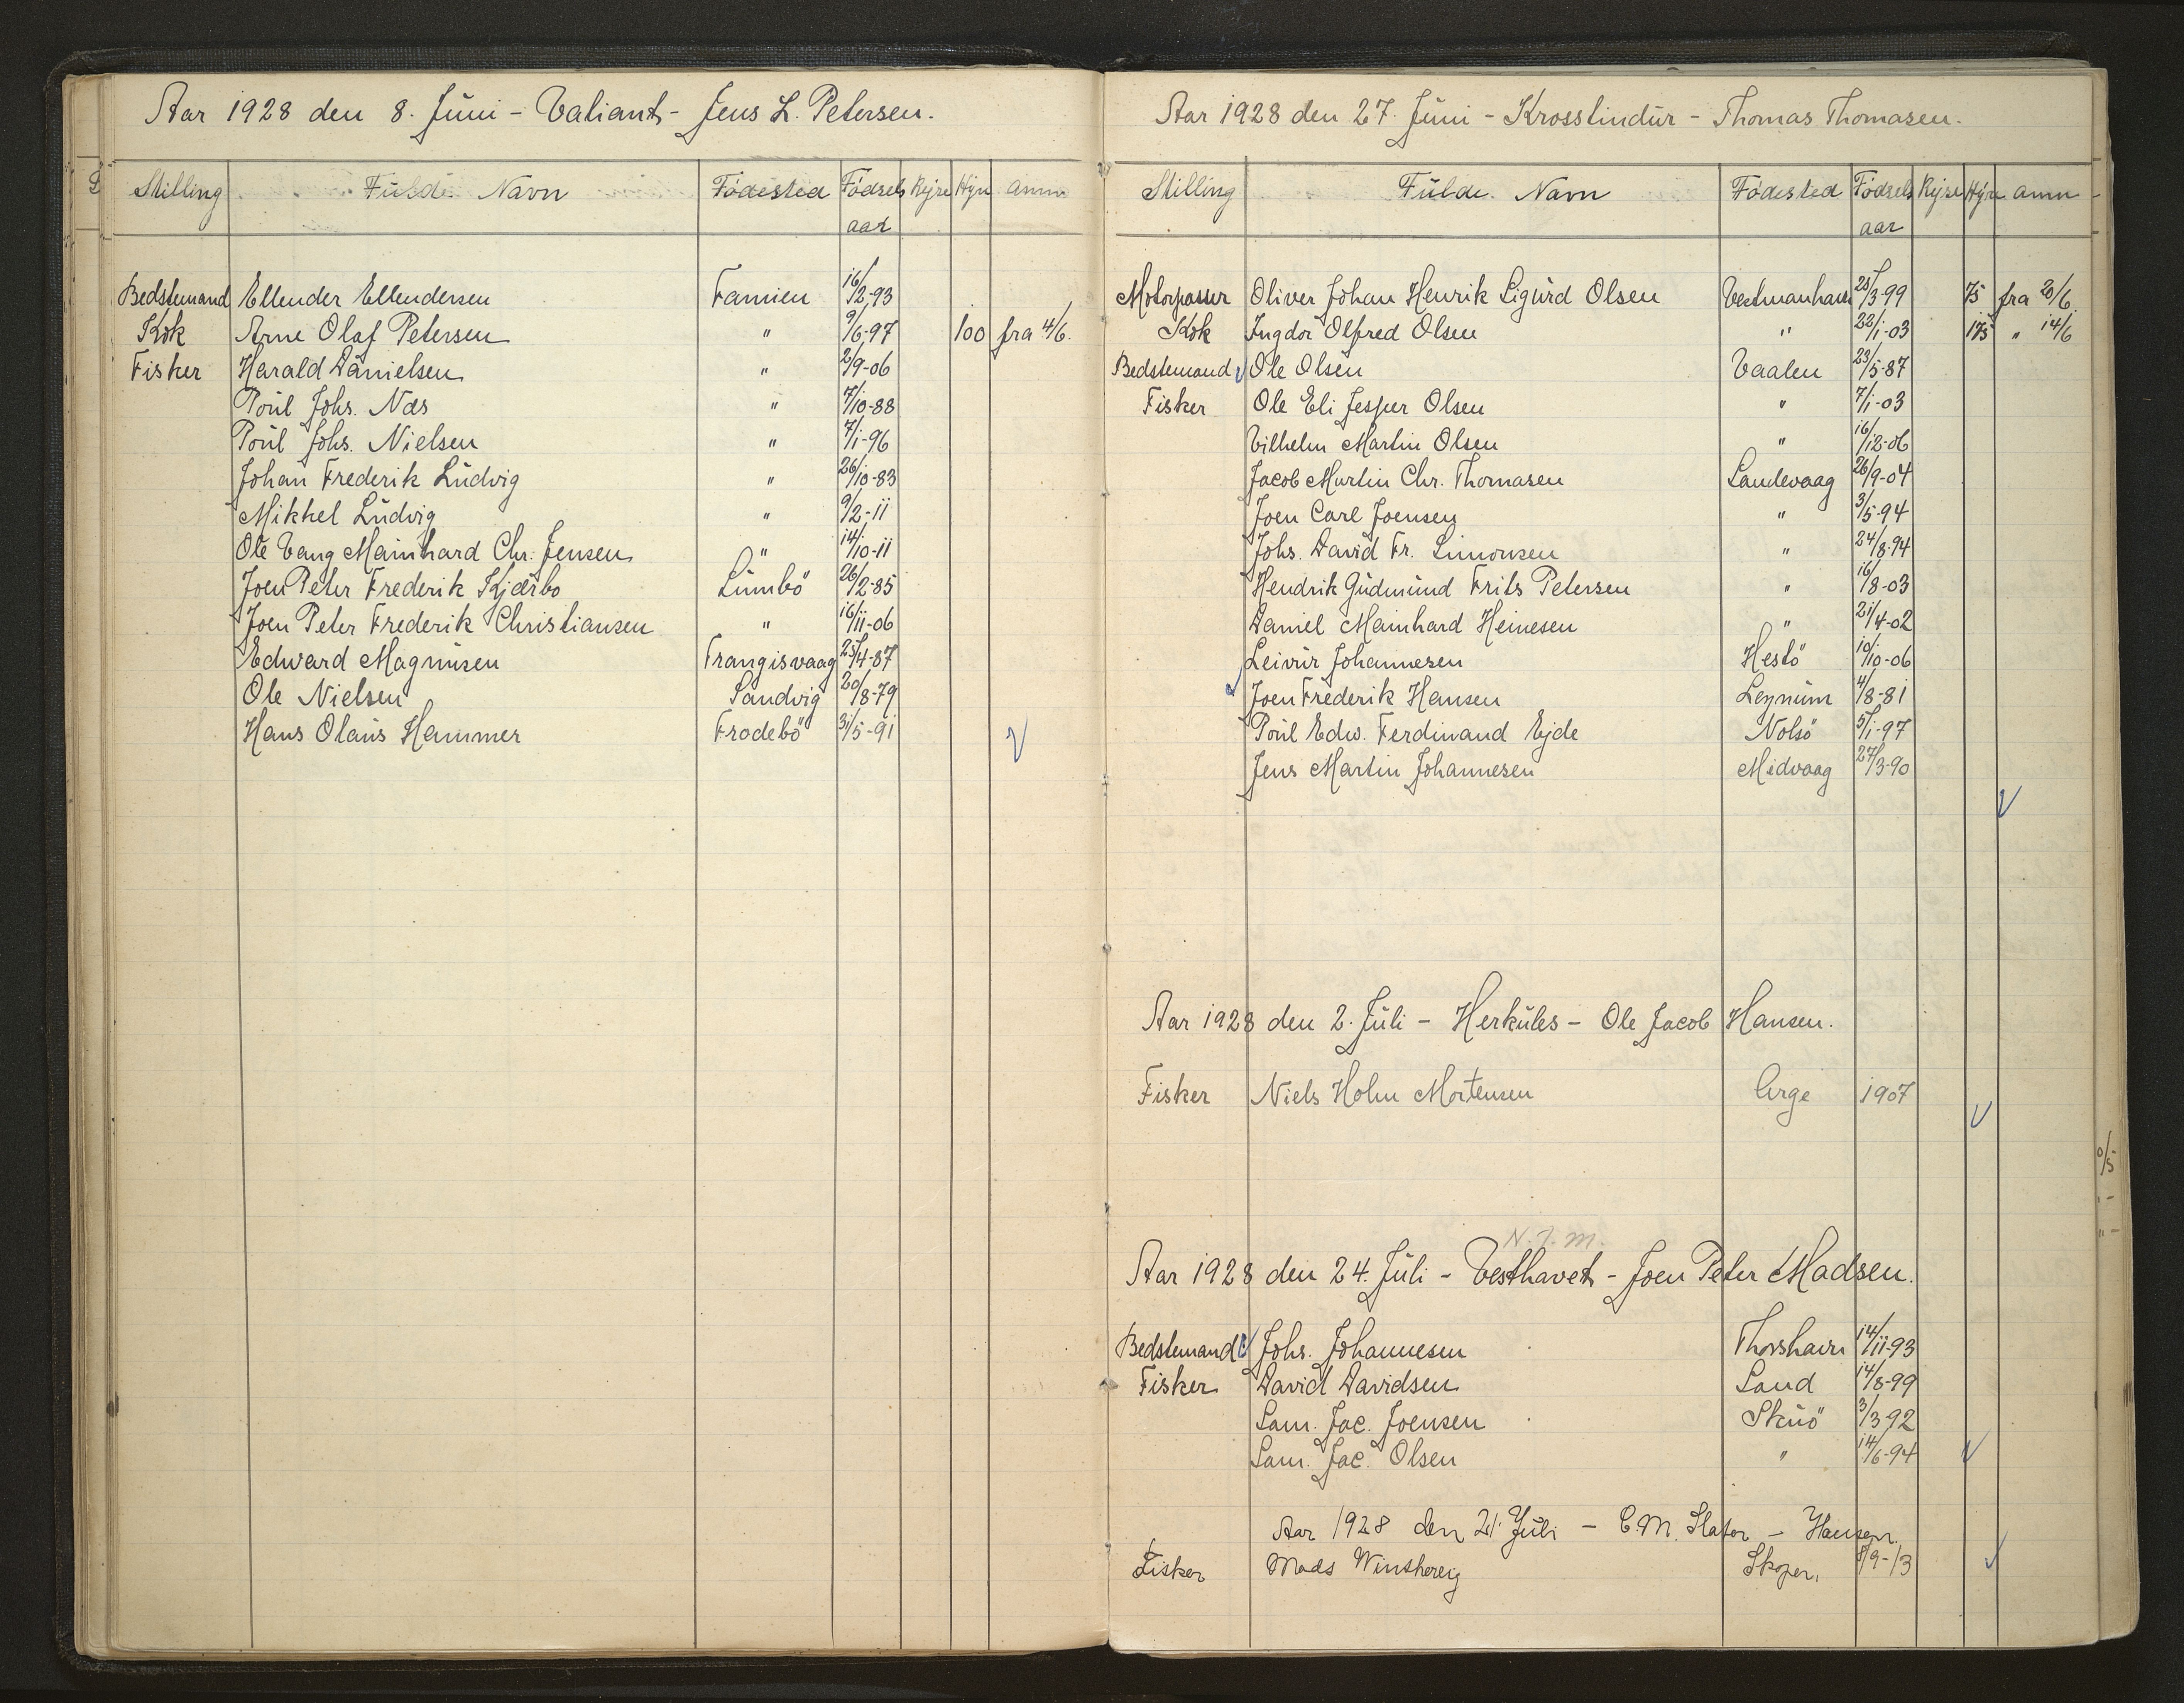 Aar 1928 den 8. Juni - Valiant - Jens L. Petersen.
Stilling Fulde Navn Fødested Fødsels Rejse Hyre Anm
aar
Bedstemand Ellender Ellendersen Famien 16/2-93
Kok Arne Olaf Petersen " 9/6-97 100 fra 4/6.
Fisker Harald Danielsen " 2/9-06
Poul Johs. Næs " 7/10-88
Poul Johs. Nielsen " 7/1-96
Johan Frederik Ludvig " 26/10-83
Mikkel Ludvig " 9/2-11
Ole Vang Mainhard Chr. Jensen " 14/10-11
Joen Peter Frederik Kjærbo Lumbö 26/2-85
Joen Peter Frederik Christiansen " 16/11-06
Edward Magnusen Trangisvaag 25/4-87
Ole Nielsen Sandvig 20/8-79
Hans Olaus Hammer Frodebö 31/5-91
Aar 1928 den 27. Juni - Krosstindur - Thomas Thomasen.
Stilling Fulde Navn Fødested Fødsels Rejse Hyre Anm
aar
Motorpasser Oliver Johan Henrik Sigurd Olsen Vestmanhavn 25/3-99 75 fra 20/6
Kok Ingdor Olfred Olsen " 22/1-03 175 " 14/6
Bedstemand Ole Olsen Vaalen 23/5-87
Fisker Ole Eli Jesper Olsen " 7/1-03
Vilhelm Martin Olsen " 16/12-06
Jacob Martin Chr. Thomasen Sandevaag 26/9-04
Joen Carl Joensen " 3/5-94
Johs. David Fr. Simonsen " 24/8-94
Hendrik Gudmund Frits Petersen " 16/8-03
Daniel Mainhard Heinesen " 21/4-02
Leivur Johannesen Hestö 10/10-06
Joen Frederik Hansen Leynum 4/8-81
Poul Edw. Ferdinand Ejde Nolsö 5/1-97
Jens Martin Johannesen Midvaag 27/3-90
Aar 1928 den 2. Juli - Herkules - Ole Jacob Hansen.
Fisker Niels Holm Mortensen Arge 1907
N.J.M.
Aar 1928 den 24. Juli - Vesthavet - Joen Peter Madsen.
Bedstemand Johs. Johannesen Thorshavn 14/11-93
Fisker David Davidsen Sand 14/8-99
Sam. Jac. Joensen Skuö 3/3-92
Sam. Jac. Olsen " 14/6-94
Aar 1928 den 21. Juli - C.M. - Hansen.
Fisker Mads Winthereig Skopen. 8/9-13